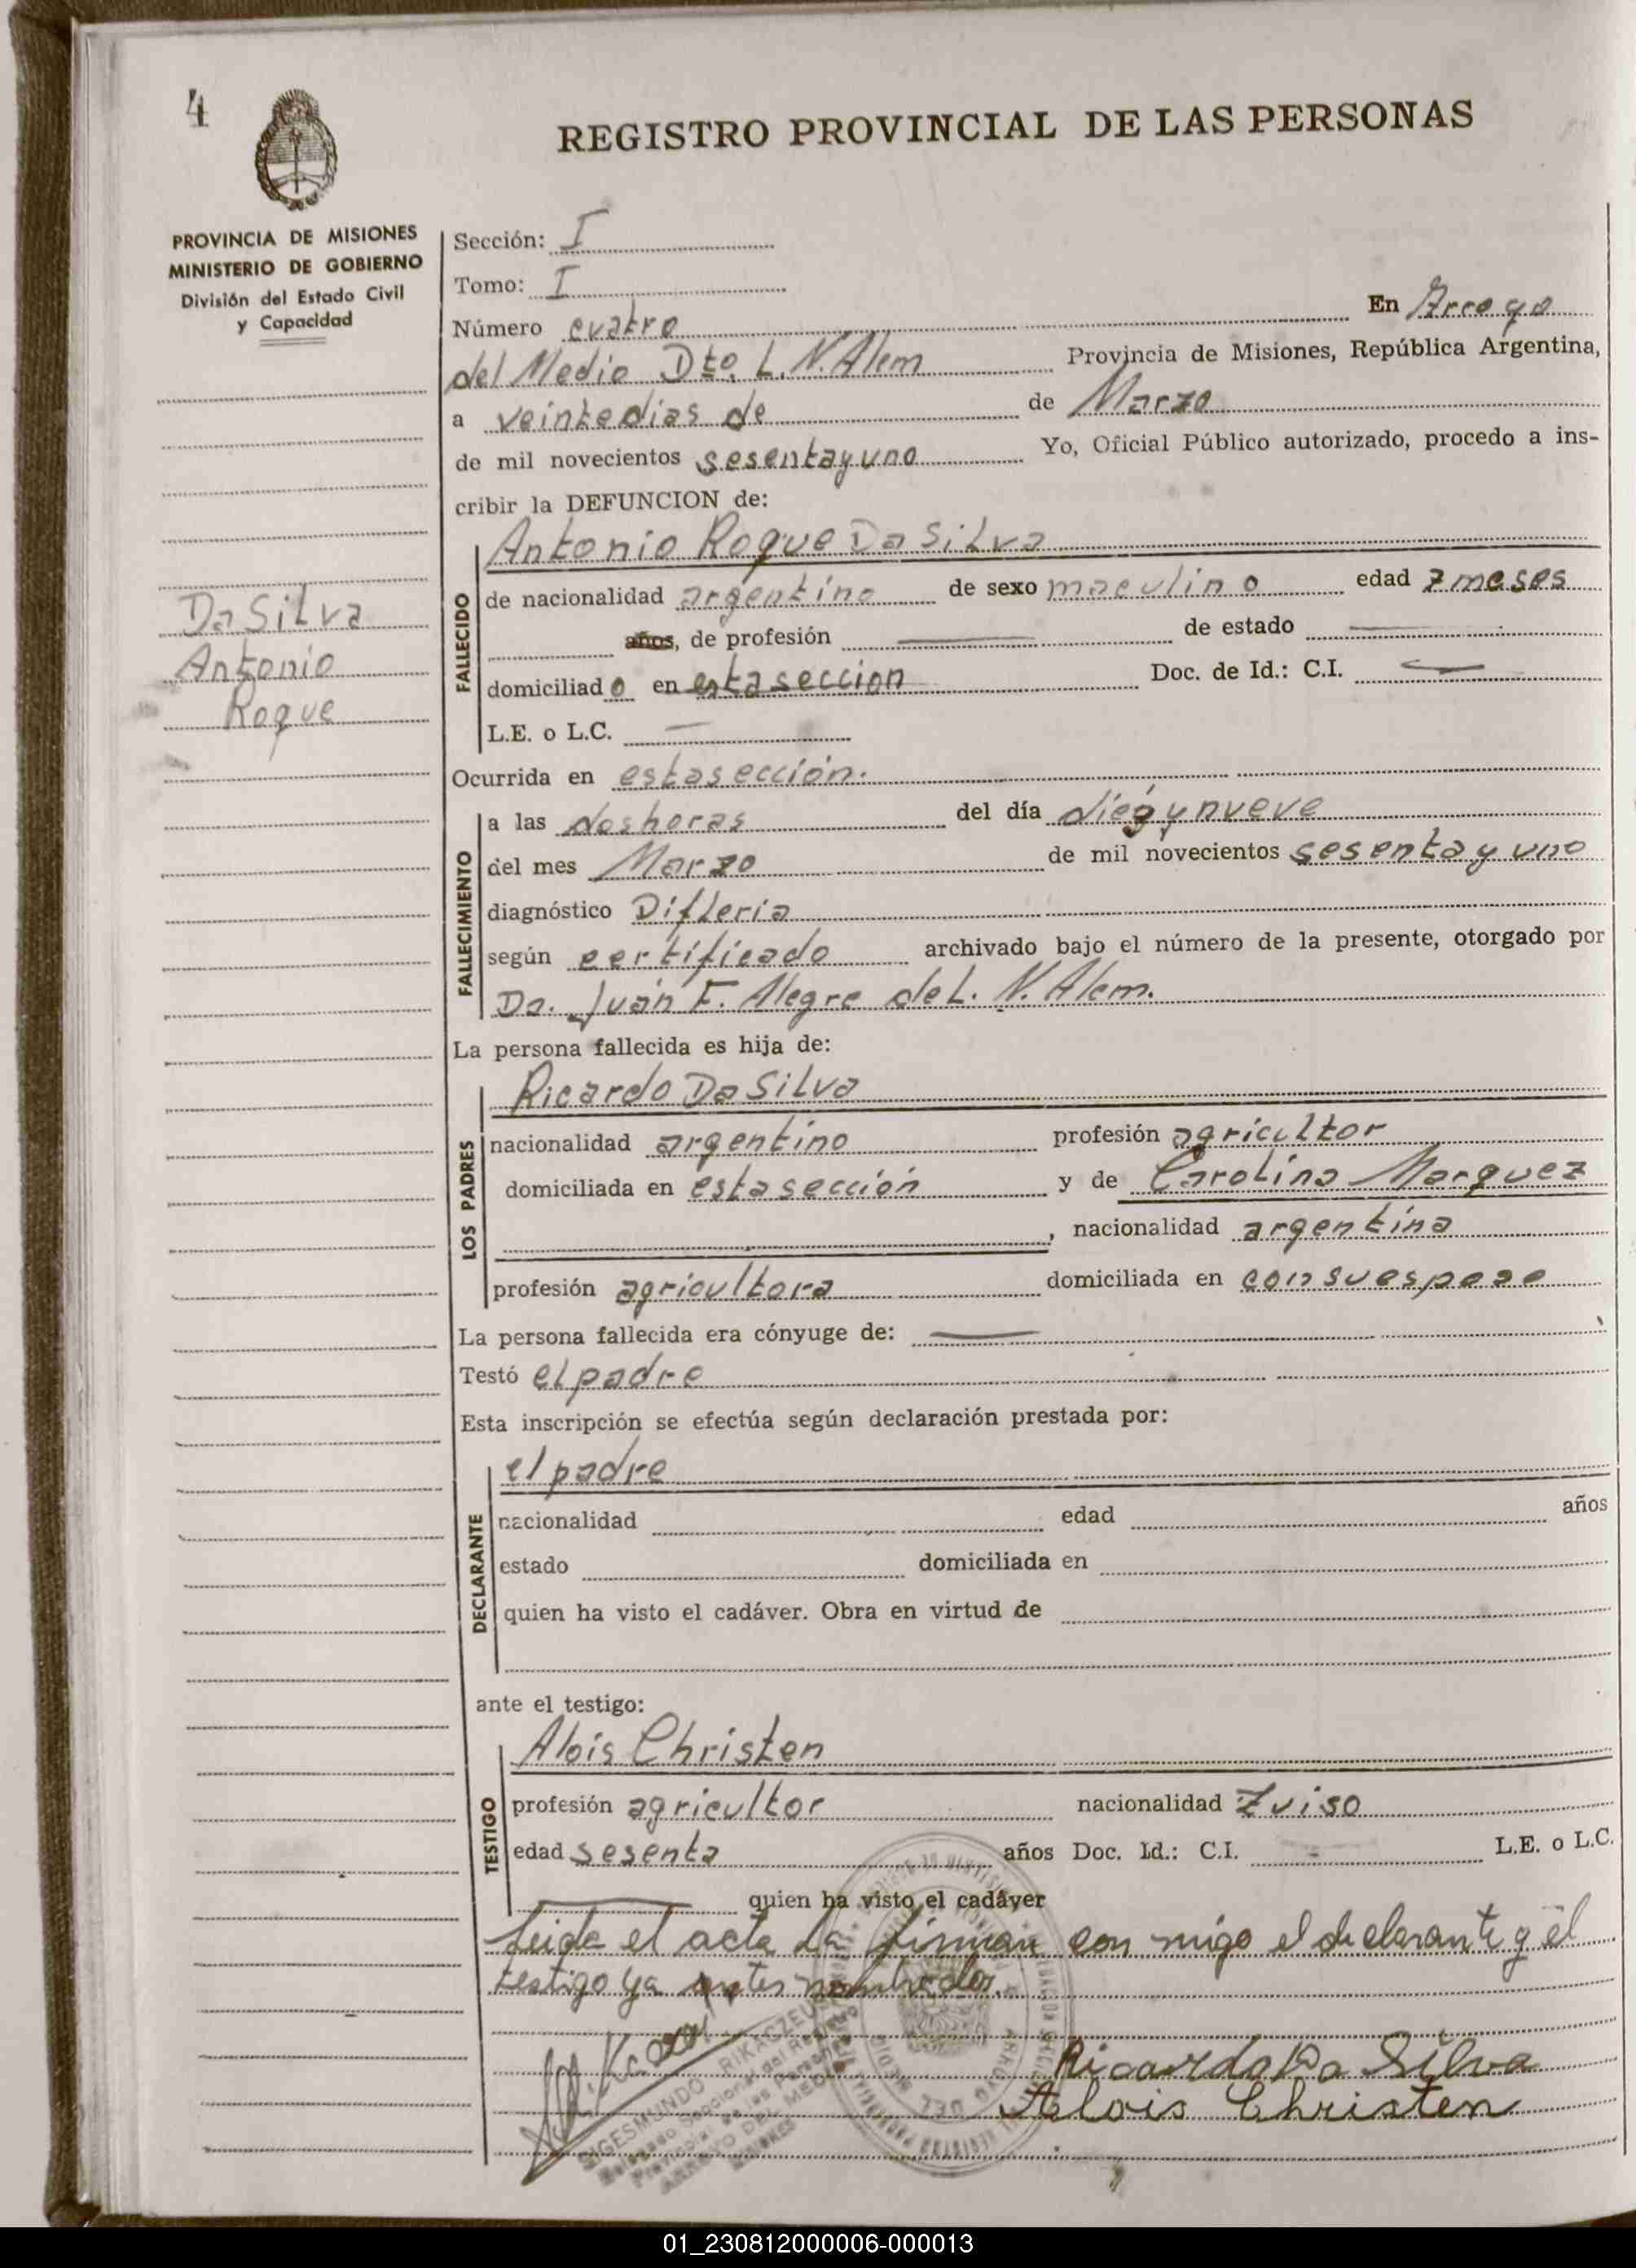 4
REGISTRO PROVINCIAL DE LAS PERSONAS
PROVINCIA DE MISIONES
MINISTERIO DE GOBIERNO
División del Estado Civil
y Capacidad
Sección: I
Tomo: I
Número cuatro En Arroyo
del Medio Dto. L. N. Alem Provincia de Misiones, República Argentina,
a veinte dias de de Marzo
de mil novecientos sesenta y uno Yo, Oficial Público autorizado, procedo a ins-
cribir la DEFUNCION de:
Da Silva
Antonio
Roque
FALLECIDO
Antonio Roque Da Silva
de nacionalidad argentino de sexo masculino edad 7 meses
años, de profesión de estado
domiciliado en esta seccion Doc. de Id.: C.I.
L.E. o L.C.
Ocurrida en esta sección.
FALLECIMIENTO
a las dos horas del día diez y nueve
del mes Marzo de mil novecientos sesenta y uno
diagnóstico Difteria
según certificado archivado bajo el número de la presente, otorgado por
Dr. Juan F. Alegre de L. N. Alem.
La persona fallecida es hija de:
LOS PADRES
Ricardo Da Silva
nacionalidad argentino profesión agricultor
domiciliada en esta sección y de Carolina Marquez
, nacionalidad argentina
profesión agricultora domiciliada en con su esposo
La persona fallecida era cónyuge de:
Testó el padre
Esta inscripción se efectúa según declaración prestada por:
DECLARANTE
el padre
nacionalidad edad años
estado domiciliada en
quien ha visto el cadáver. Obra en virtud de
ante el testigo:
TESTIGO
Alois Christen
profesión agricultor nacionalidad Zuiso
edad sesenta años Doc. Id.: C.I. L.E. o L.C.
quien ha visto el cadáver
Leida el acta La firman con migo el declarante y el
testigo ya antes nombrados.
Ricardo Da Silva
Alois Christen
01_230812000006-000013